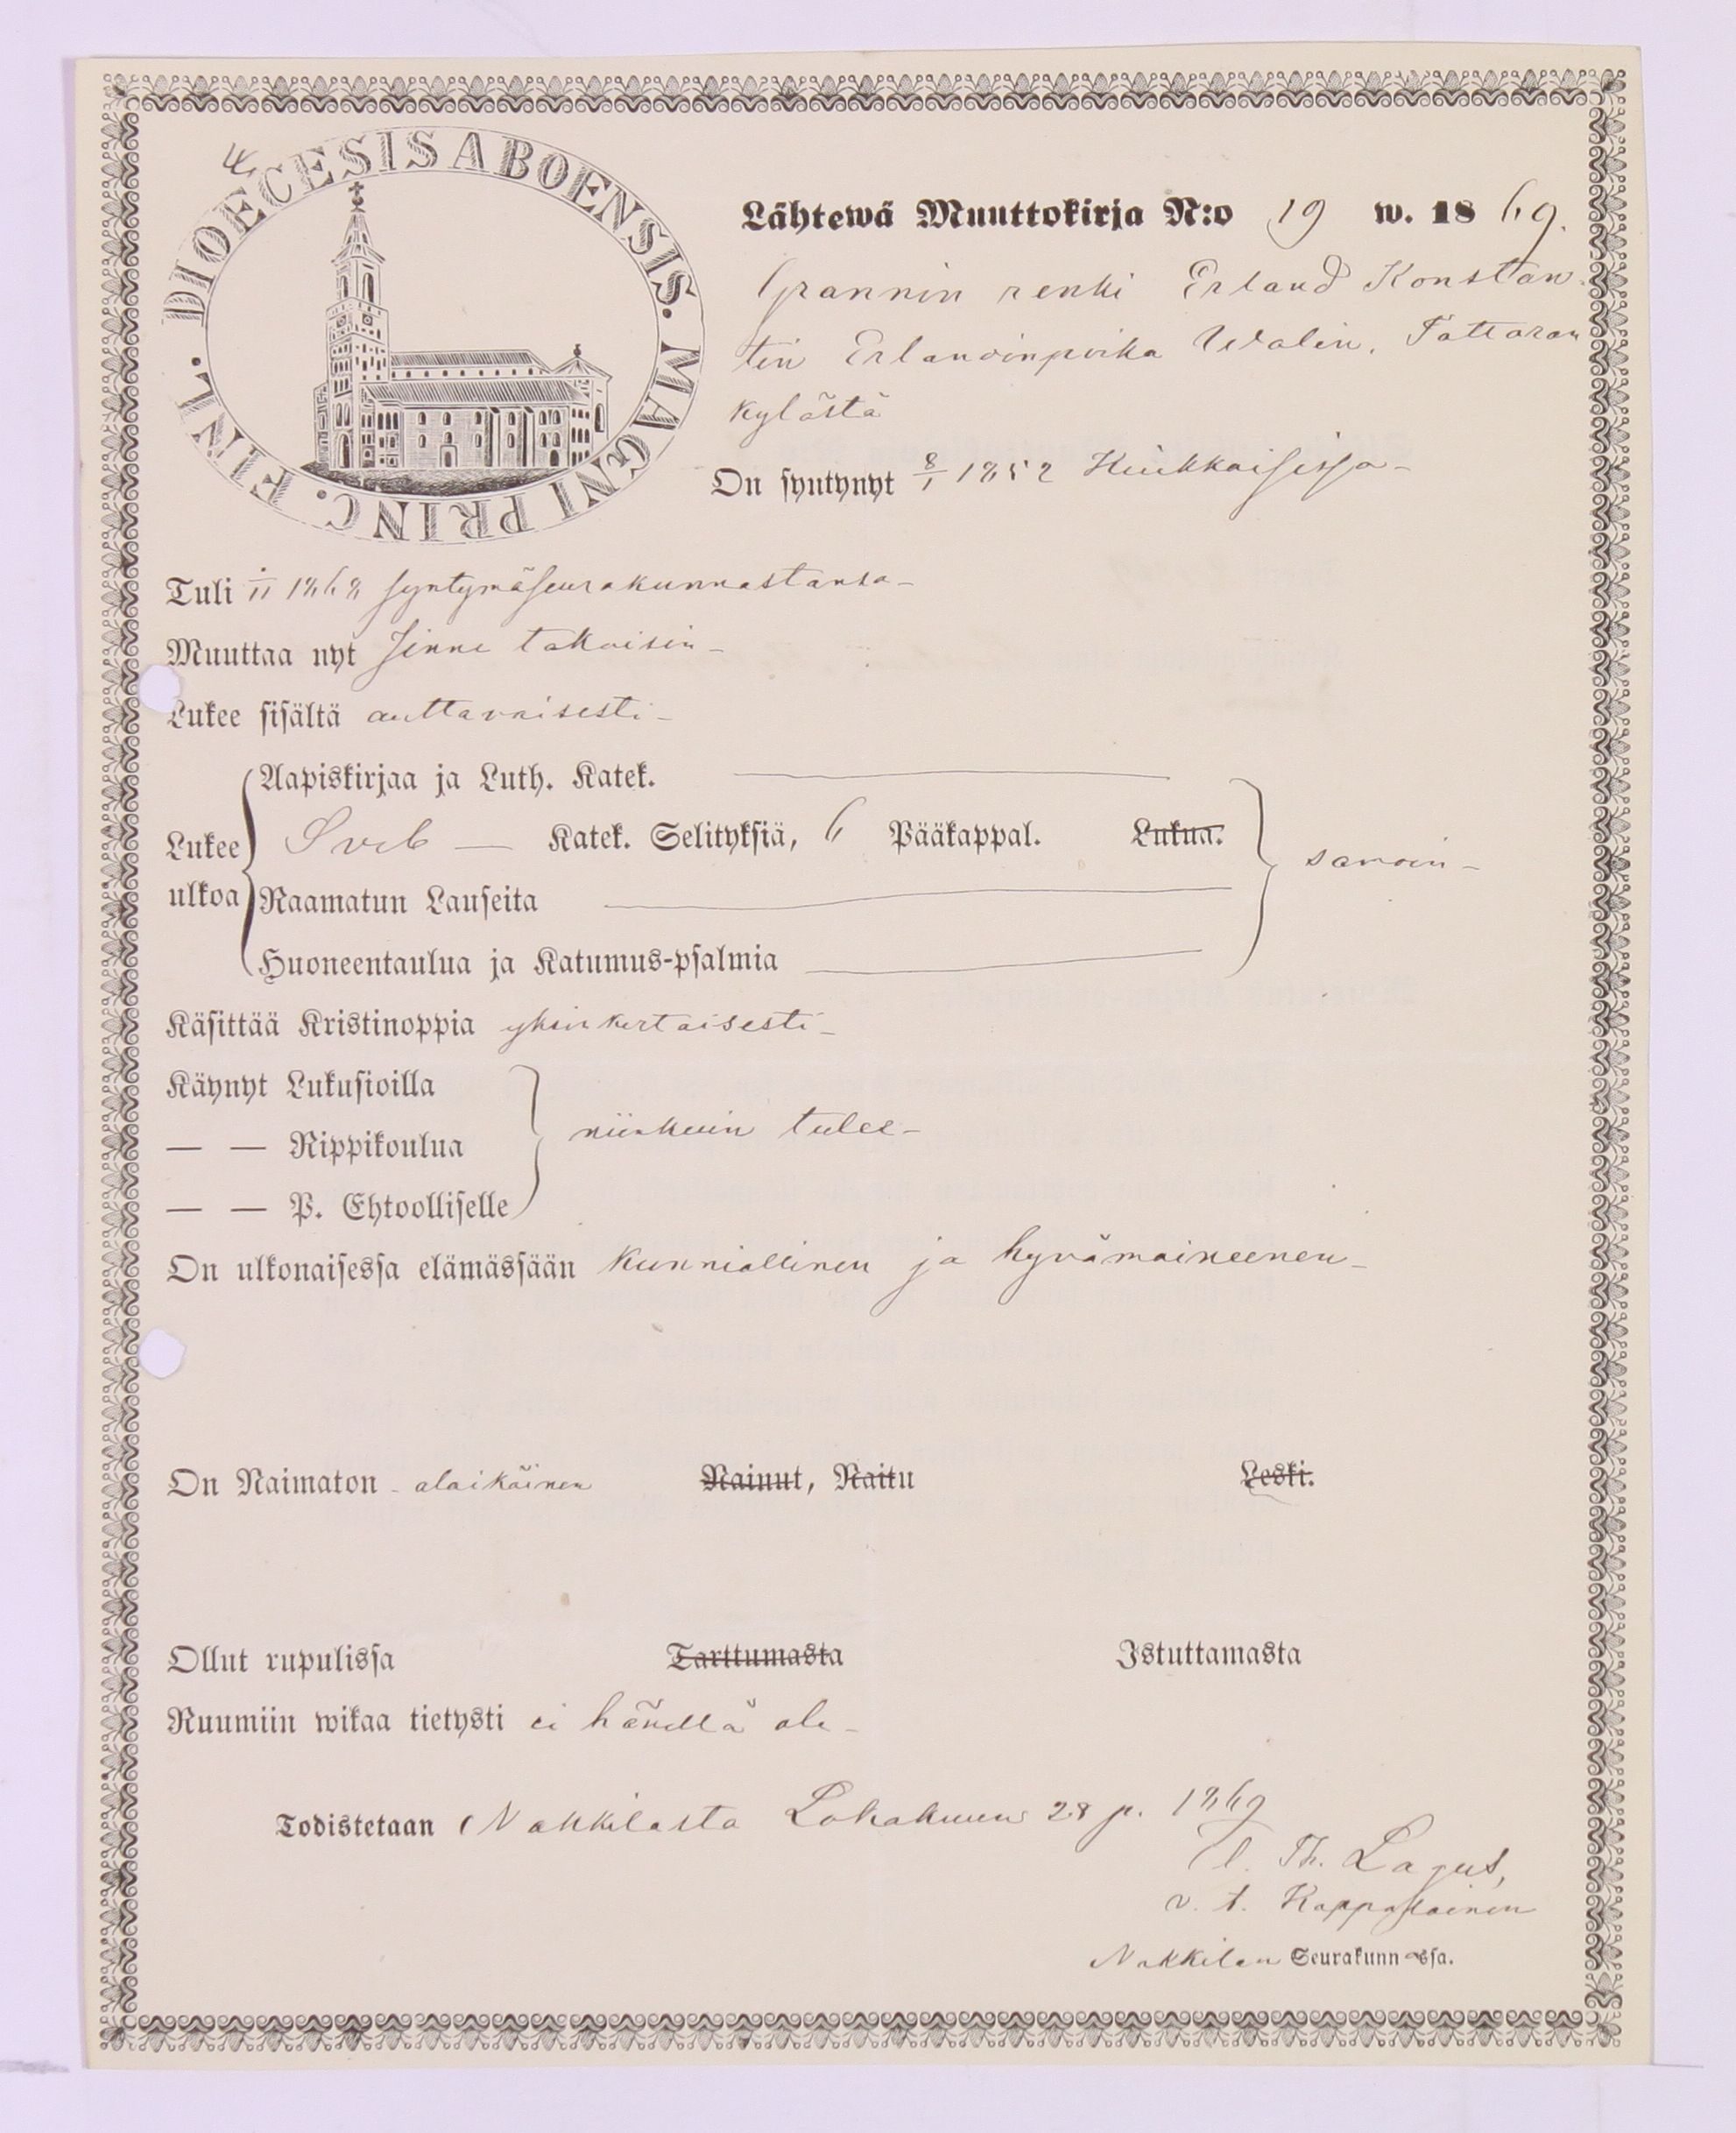 DIOECESIS ABOENSIS. MAGNI PRINC. FINL.
Lähtewä Muuttokirja N:o 19 w. 1869.
Grannin renki Erland Konstan-
tin Erlandinpoika Walin, Tattaran
kylästä
On syntynyt 8/1 1852 Kiukkaisissa -
Tuli 1/11 1868 syntymäseurakunnastansa -
Muuttaa nyt sinne takaisin -
Lukee sisältä auttavaisesti -
Aapiskirjaa ja Luth. Katek.
Lukee ulkoa Sveb — Katek. Selityksiä, 6 Pääkappal. Lukua. savoin -
Raamatun Lauseita
Huoneentaulua ja Katumus-psalmia
Käsittää Kristinoppia yksinkertaisesti -
Käynyt Lukusioilla
— — Rippikoulua niinkuin tulee -
— — P. Ehtoolliselle
On ulkonaisessa elämässään kunniallinen ja hyvämaineenen -
On Naimaton - alaikäinen Nainut, Naitu Leski.
Ollut rupulissa Tarttumasta Istuttamasta
Ruumiin wikaa tietysti ei hänellä ole -
Todistetaan Nakkilasta Lokakuun 28 p. 1869
Th. Lagus,
v. t. Kappalainen
Nakkilan Seurakunnassa.